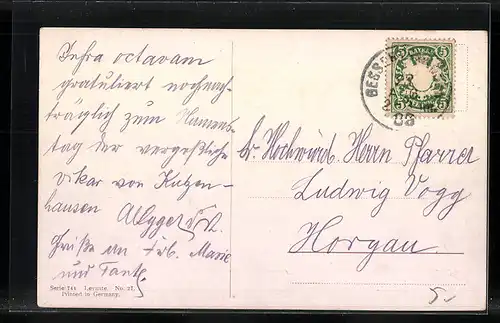 Infra octavam
gratuliert nochnach-
träglich zum Namens-
tag der vergeßliche
Vikar von Kutzen-
hausen
Grüße an Frl. Marie
und Tante.
Serie 744 Levante. No. 27.
Printed in Germany.
5 BAYERN 5
5 5
Sr. Hochwürd. Herrn Pfarrer
Ludwig Vogg
Horgau.
5.-